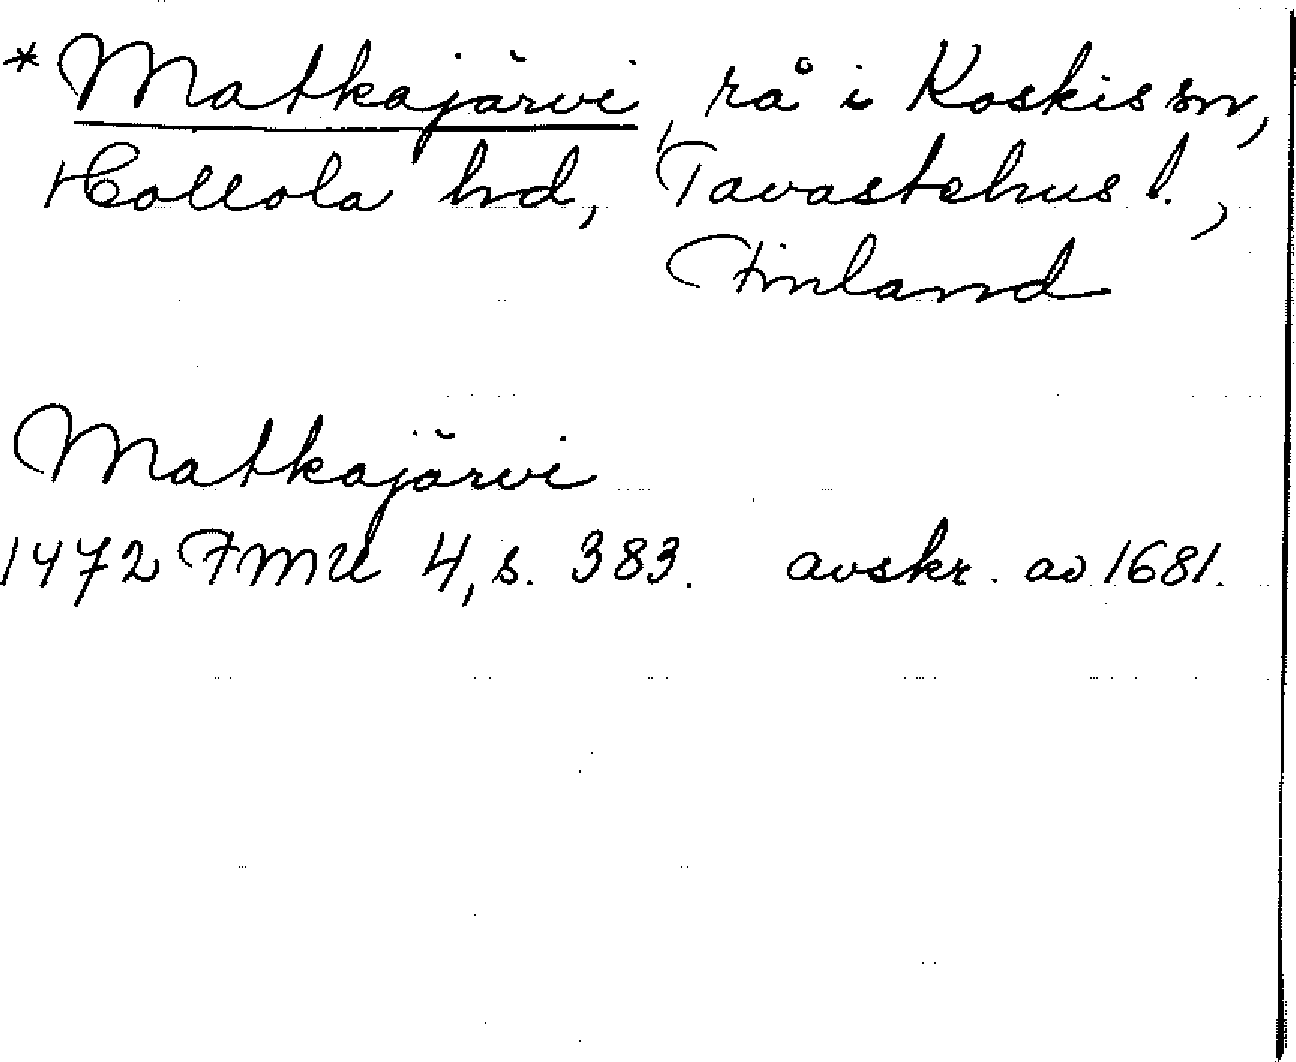 *Matkajärvi, rå i Koskis sn,
Hollola hd, Tavastehus l.,
Finland
Matkajärvi
1472 FMU 4, s. 383. avskr. av 1681.